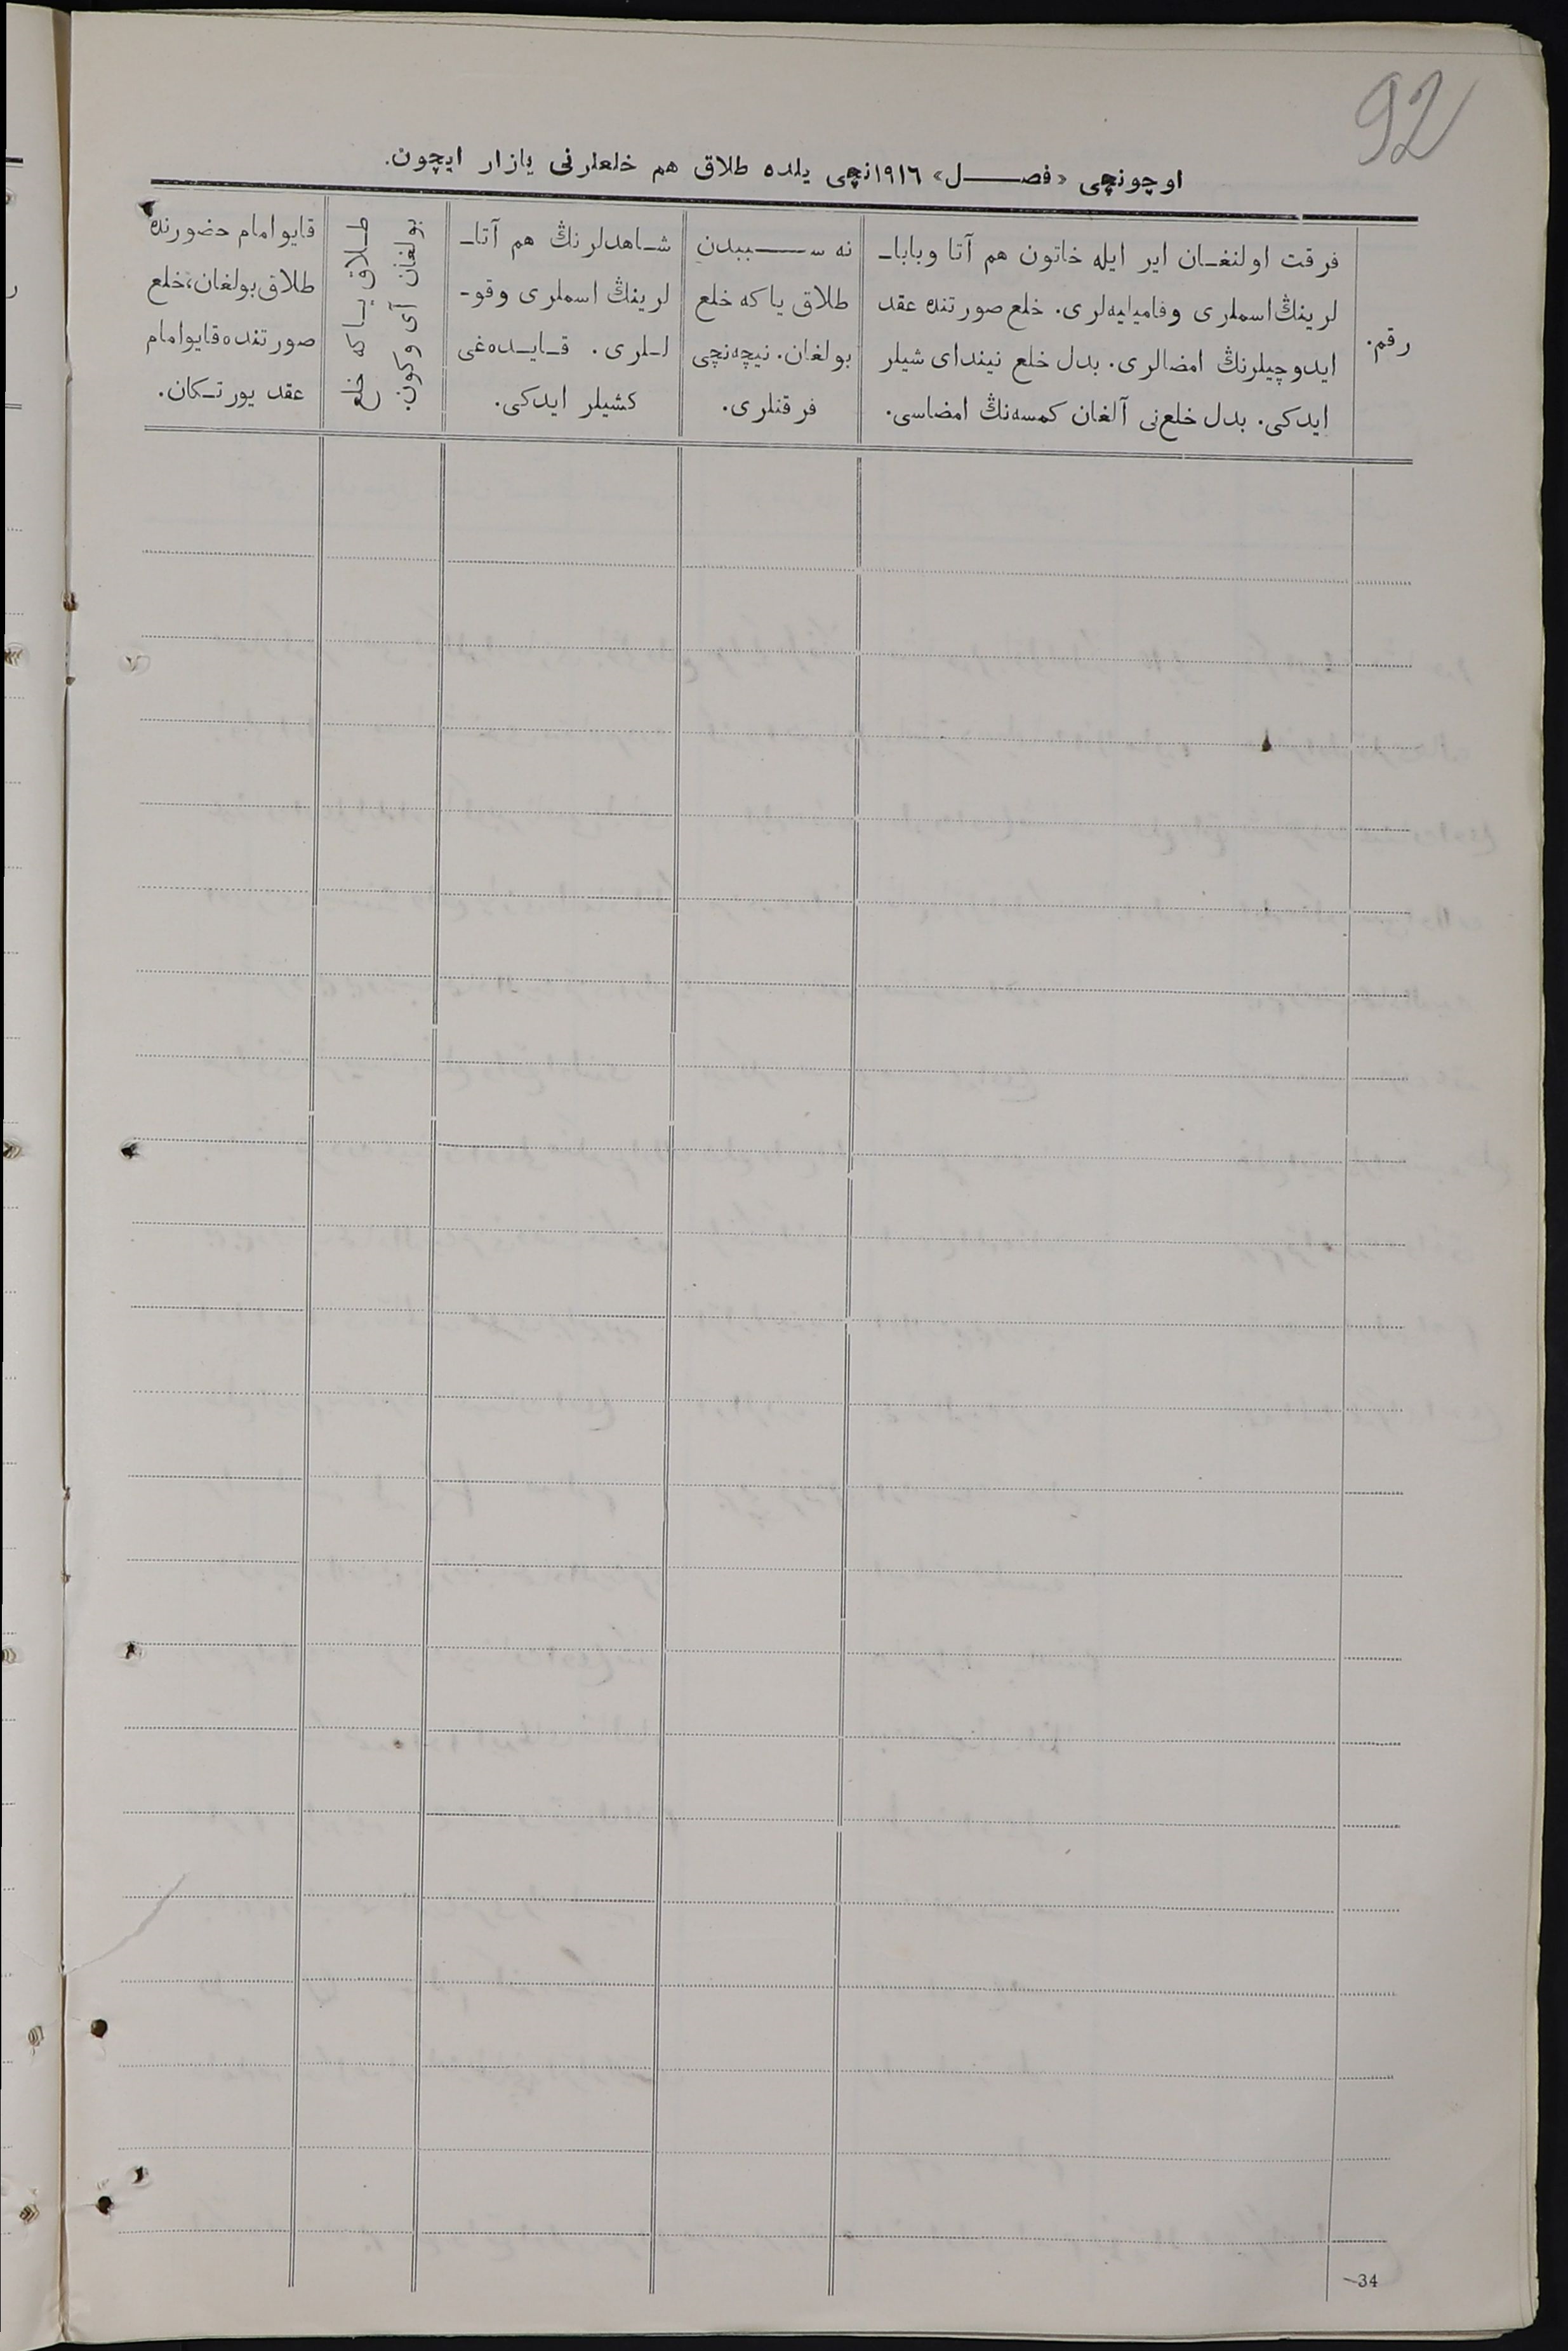 92
اوچونچی «فصل» ١٩١٦نچی يلده طلاق هم خلعلرنی يازار ايچون.
رقم.
فرقت اولنغان اير ايله خاتون هم آتا وبابا-
لرينڭ اسملری وفاميليه‌لری. خلع صورتنده عقد
ايدوچيلرنڭ امضالری. بدل خلع نيندای شيلر
ايدکی. بدل خلع‌نی آلغان کمسه‌نڭ امضاسی.
نه سببدن
طلاق ياکه خلع
بولغان. نيچه‌نچی
فرقتلری.
شاهدلرنڭ هم آتا-
لرينڭ اسملری وقو-
للری. قايده‌غی
کشيلر ايدکی.
طلاق ياکه خلع
بولغان آی وکون.
قايو امام حضورنده
طلاق بولغان، خلع
صورتنده قايو امام
عقد يورتکان.
34